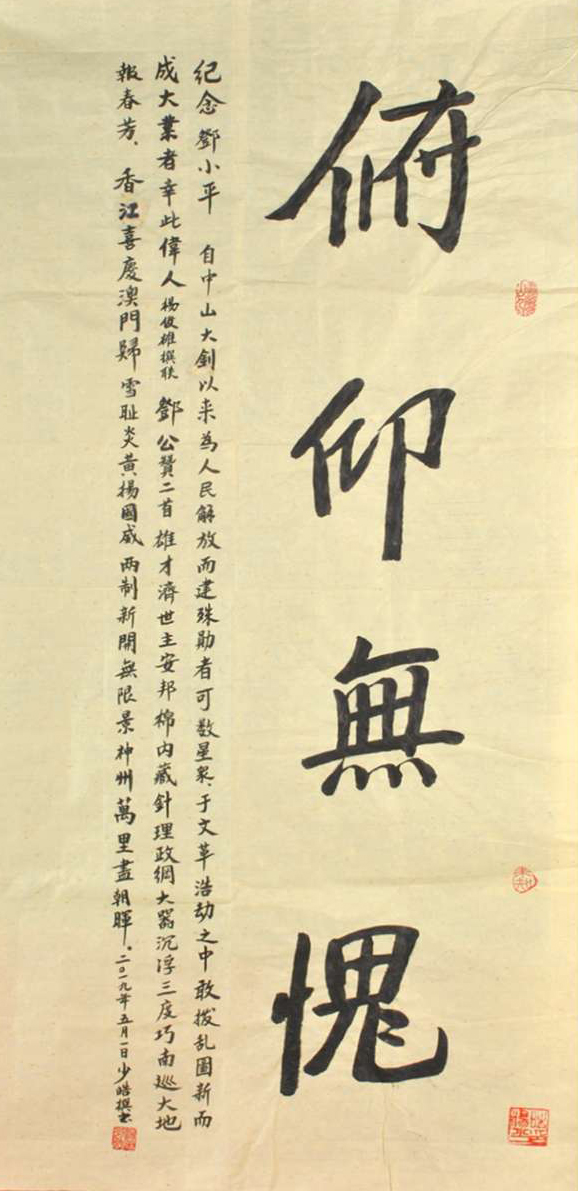 俯仰無愧
纪念鄧小平 自中山大釗以来為人民解放而建殊勛者可数星泉、于文革浩劫之中敢拨乱圖新而
成大業者幸此偉人 楊俊雄撰联 鄧公贊二首 雄才濟世主安邦棉内藏針理政綱大器沉浮三度巧南巡大地
報春芳、香江喜慶澳門歸雪耻炎黄揚國威两制新開無限景神州萬里盡朝暉。二〇一九年五月一日少皓撰书